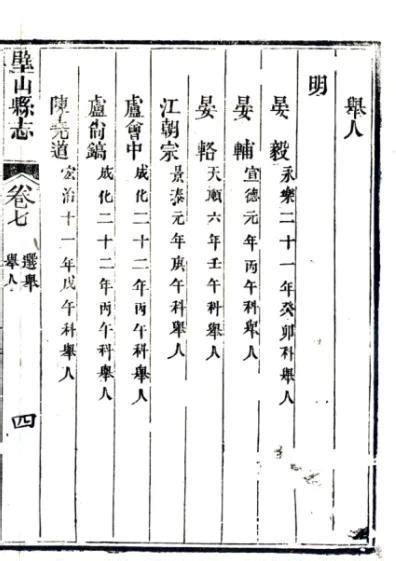 舉人
明
晏毅 永樂二十一年癸卯科舉人
晏輔 宣德元年丙午科舉人
晏輅 天順六年壬午科舉人
江朝宗 景泰元年庚午科舉人
盧會中 成化二十二年丙午科舉人
盧尚鎬 成化二十二年丙午科舉人
陳堯道 宏治十一年戊午科舉人
壁山縣志 卷七 選舉 舉人 四